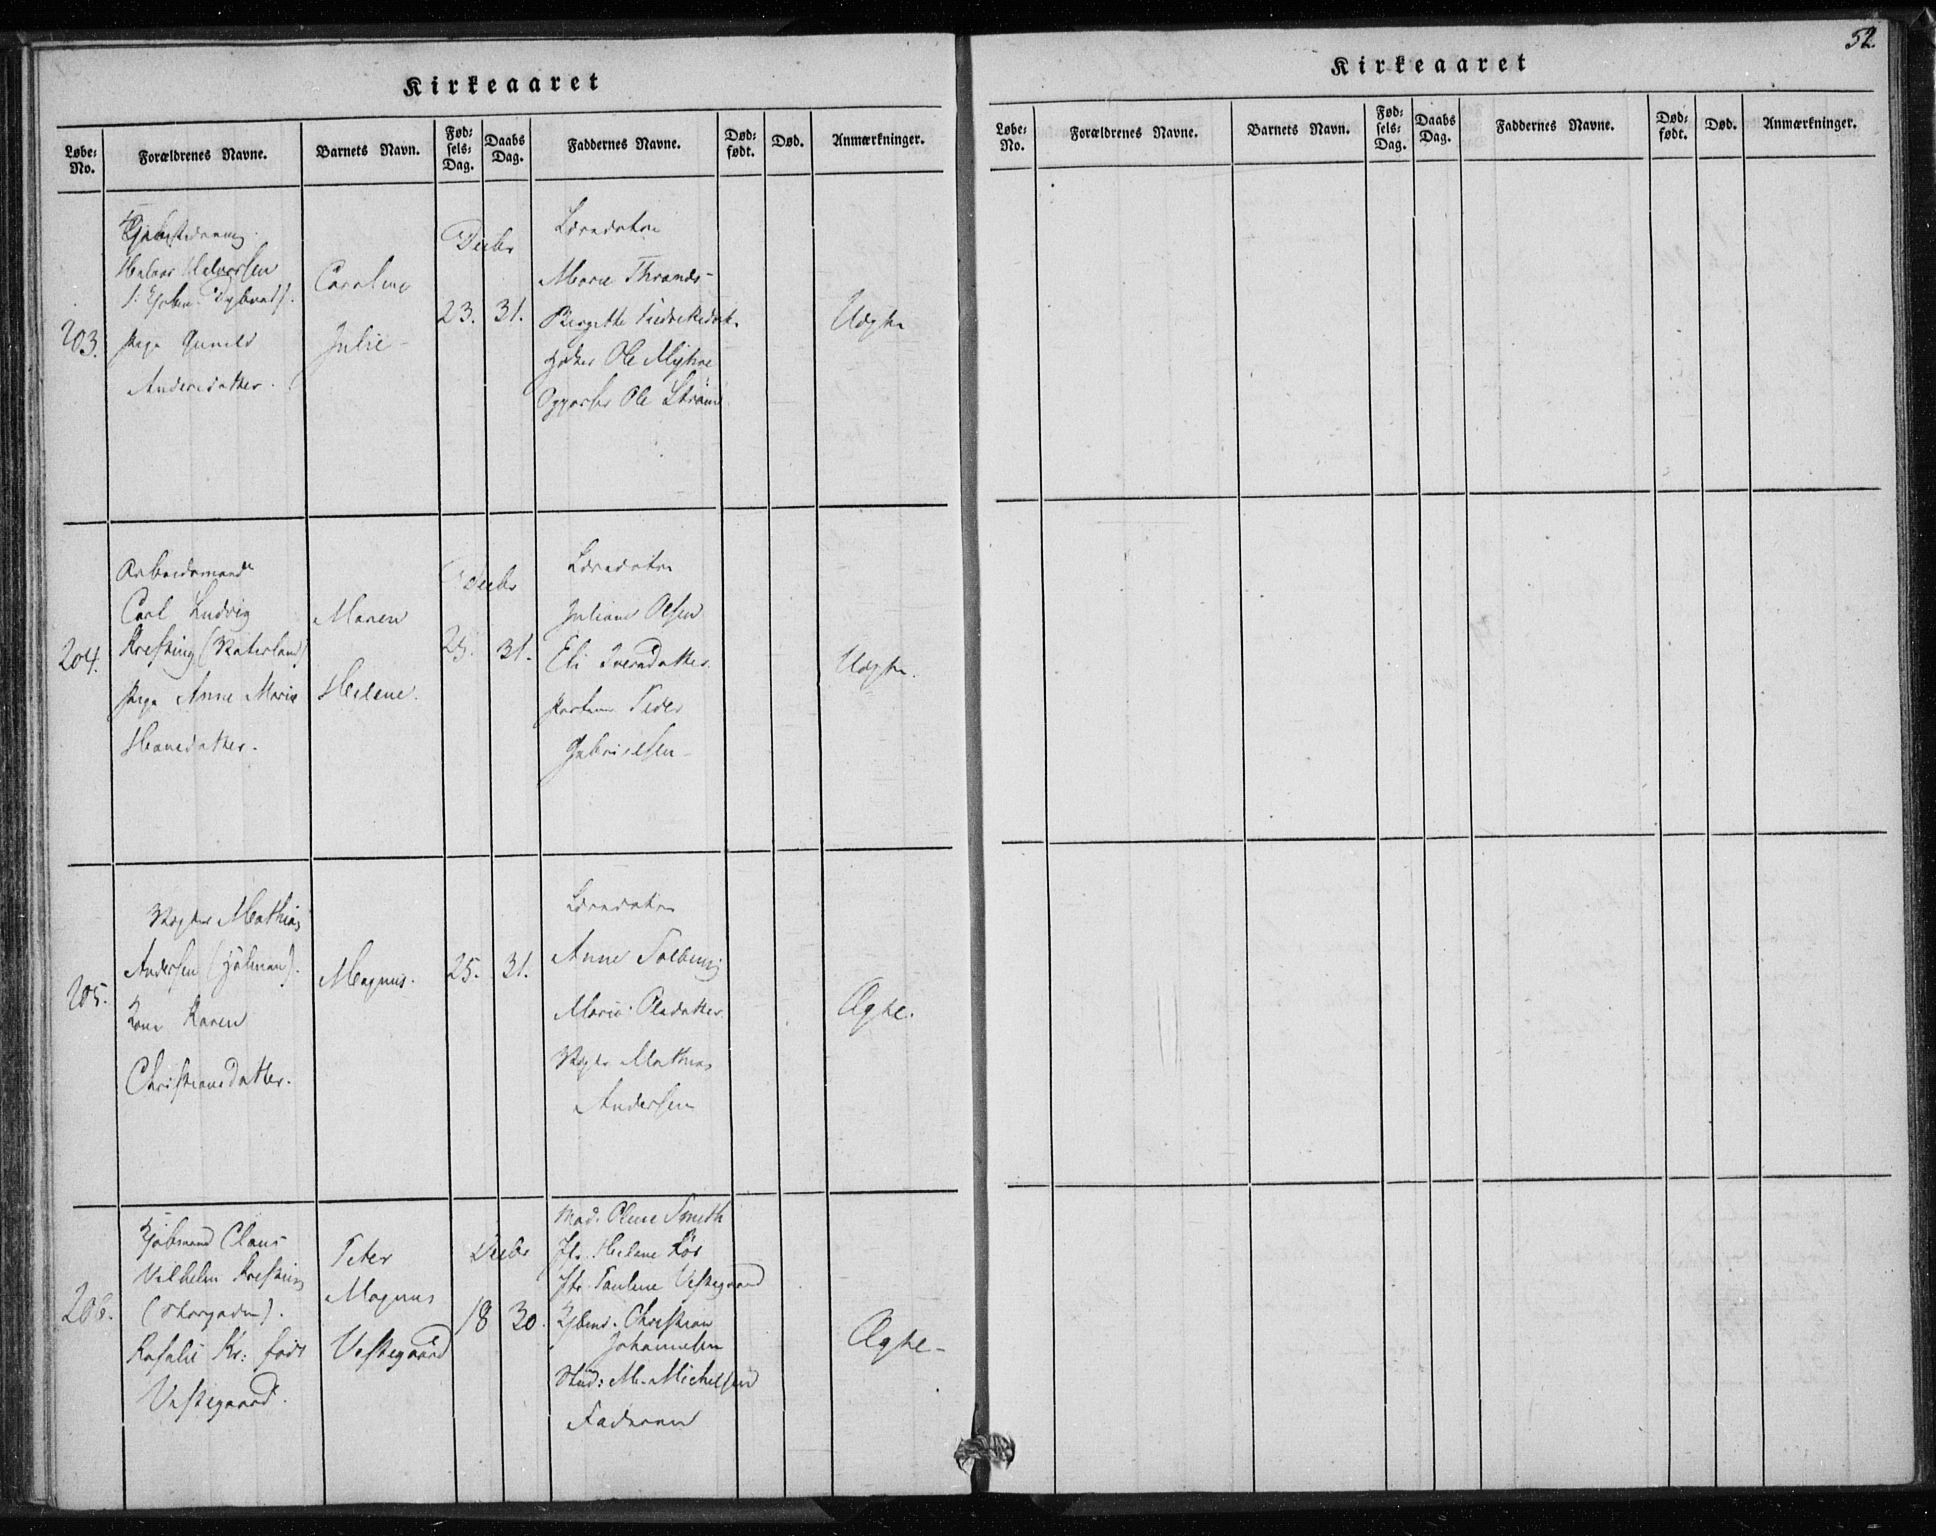 52.
Kirkeaaret
Løbe-No. Forældrenes Navne. Barnets Navn. Fødsels-Dag. Daabs Dag. Faddernes Navne. Dødfødt. Død. Anmærkninger.
203.
Halvor Halvorsen
pige Gunild
Andersdatter.
Caroline
Julie
Decbr
23. 31.
Marie Thrands-
Birgitte
Ole
Ole Strøm
Uægte
204.
Arbeidsmand
Carl Ludvig
Kresting (Vaterland)
pige Anne Marie
Hansdatter.
Maren
Helene.
Decbr
25. 31.
Juliane Olsen
Eli Iversdatter.
Peder
Gabrielsen
Uægte.
205.
Vægter Mathias
Andersen
Kone Karen
Christiansdatter.
Magnus.
25. 31.
Anne Solberg
Marie Olsdatter
Vægter Mathias
Andersen
Ægte.
206.
Kjøbmand Claus
Vilhelm Kresting
(Storgaden).
Rosalie Kr: født
Vestegaard.
Peter
Magnus
Vestegaard
Decbr
18 30.
Mad. Olene Smith
Jfr. Helene
Jfr. Pauline Vestegaard
Kjbmd. Christian
Johannesen
Stud: M. Michelsen
Faderen
Ægte
Kirkeaaret
Løbe-No. Forældrenes Navne. Barnets Navn. Fødsels-Dag. Daabs Dag. Faddernes Navne. Dødfødt. Død. Anmærkninger.